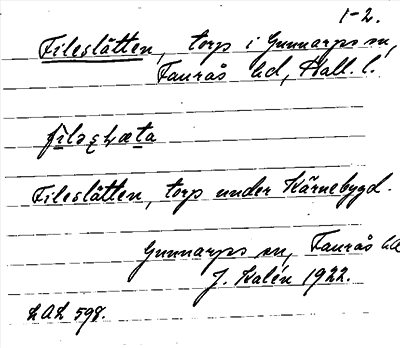 1-2.
Fileslätten, torp i Gunnarps sn,
Faurås hd, Hall. l.
Fileslätten, torp under Kärnebygd.
Gunnarps sn, Faurås hd
J. Kalén 1922.
LAL 598.